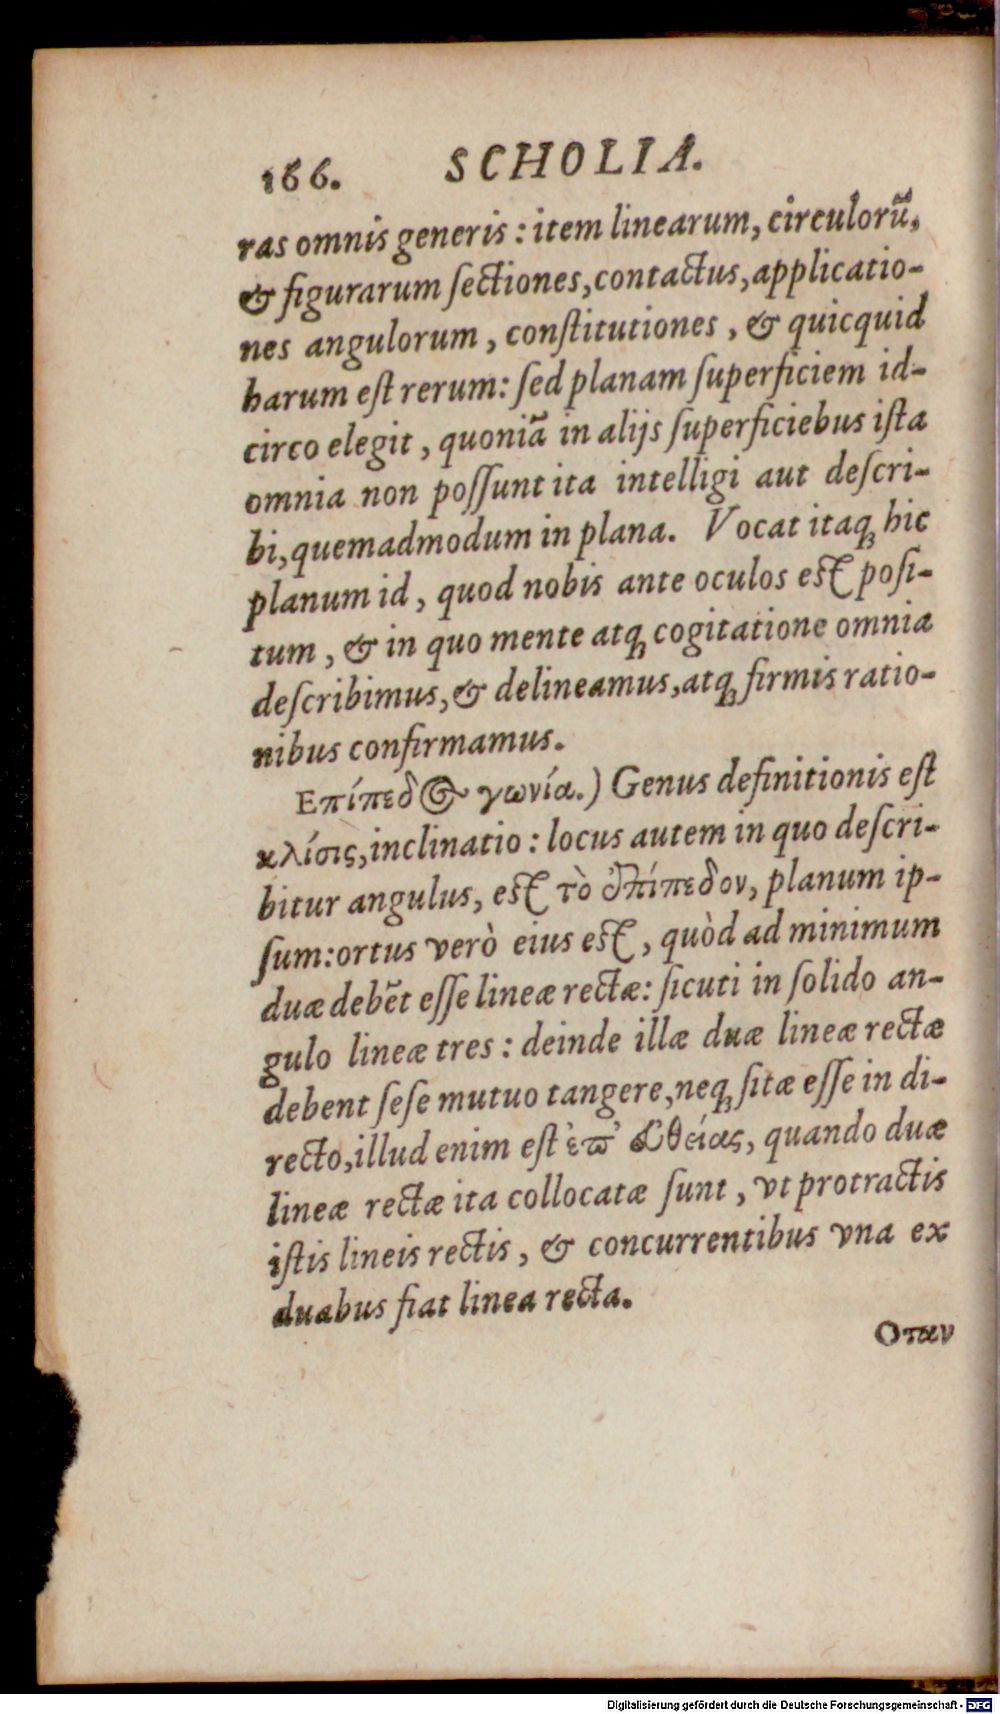 166. SCHOLIA.
ras omnis generis : item linearum, circulorũ,
& figurarum ſectiones, contactus, applicatio-
nes angulorum, conſtitutiones, & quicquid
harum eſt rerum: ſed planam ſuperficiem id-
circo elegit, quoniã in alijs ſuperficiebus iſta
omnia non poſſunt ita intelligi aut deſcri-
bi, quemadmodum in plana. Vocat itaq́; hic
planum id, quod nobis ante oculos eſt poſi-
tum, & in quo mente atq́; cogitatione omnia
deſcribimus, & delineamus, atq́; firmis ratio-
nibus confirmamus.
Επίπεδος γωνία.) Genus definitionis eſt
κλίσις, inclinatio : locus autem in quo deſcri-
bitur angulus, eſt τὸ ἐπίπεδον, planum ip-
ſum: ortus verò eius eſt, quòd ad minimum
duæ debẽt eſſe lineæ rectæ: ſicuti in ſolido an-
gulo lineæ tres : deinde illæ duæ lineæ rectæ
debent ſeſe mutuo tangere, neq́; ſitæ eſſe in di-
recto, illud enim eſt ἐπ᾽ εὐθείας, quando duæ
lineæ rectæ ita collocatæ ſunt, vt protractis
iſtis lineis rectis, & concurrentibus vna ex
duabus fiat linea recta.
Οταν
Digitalisierung gefördert durch die Deutsche Forschungsgemeinschaft - DFG